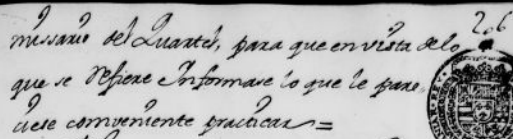 206
missario del Quartel, para que en vista de lo
que se refiere Informase lo que le pare,
ciese comveniente practicar =